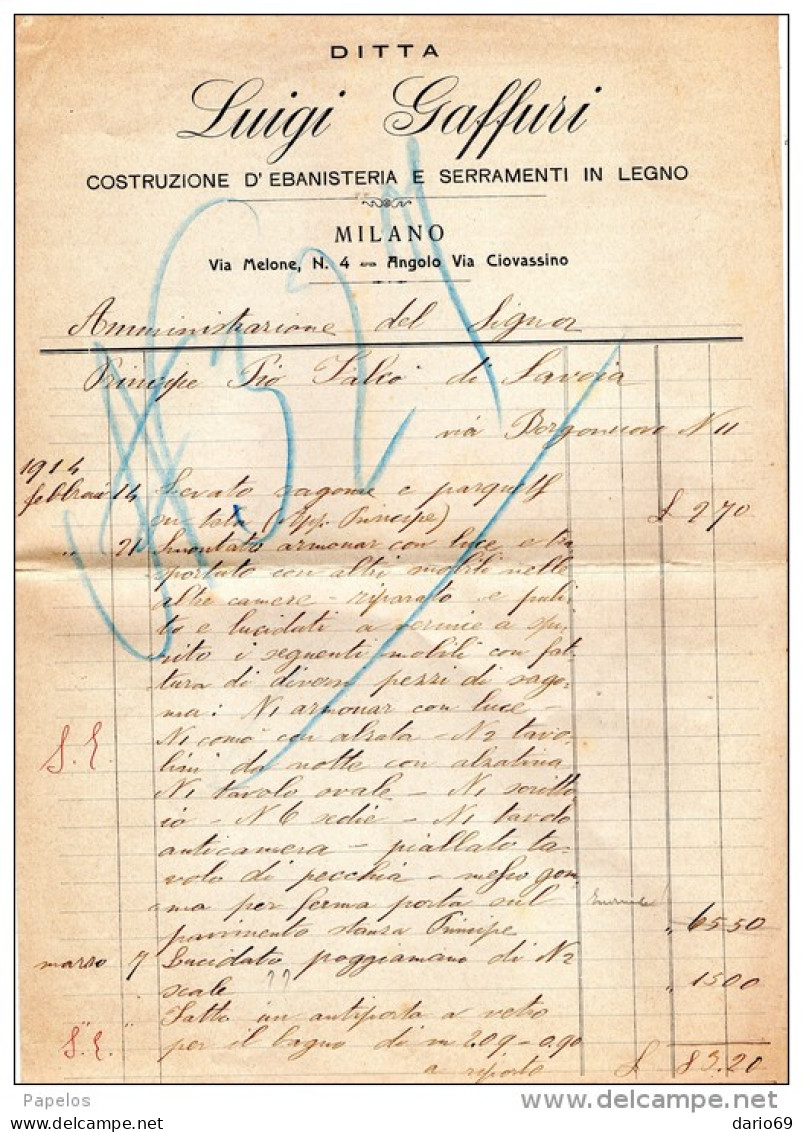 DITTA
Luigi Gaffuri
COSTRUZIONE D'EBANISTERIA E SERRAMENTI IN LEGNO
MILANO
Via Melone, N. 4 - Angolo Via Ciovassino
Amministrazione del Signor
Principe Pio Falcò di Savoia
via Borgonuovo N 11
1914
febbraio 14 Levato sagome e
in (App. Principe) £ 2 70
" 21 Smontato armonar con luce e tra
portato con altri mobili nelle
altre camere - riparato e puli-
to e lucidati a vernice a spi-
rito i seguenti mobili con fat-
tura di diversi pezzi di sago-
ma: N1 armonar con luce -
N1 comò con alzata - N2 tavo-
S. E. lini da notte con alzatina
N1 tavolo ovale - N1 scritto
io - N 6 sedie - N1 tavolo
anticamera - piallato ta-
volo di pecchia - messo gom-
ma per ferma porta sul
pavimento stanza Principe " 65 50
marzo 7 Lucidato poggiamano di N2
scale ?? " 15 00
" " Fatto un antiporta a vetro
S. E. per il bagno di m 2.09 - 0.90
a riporto £ 83.20
Papelos
delcampe.net
dario69